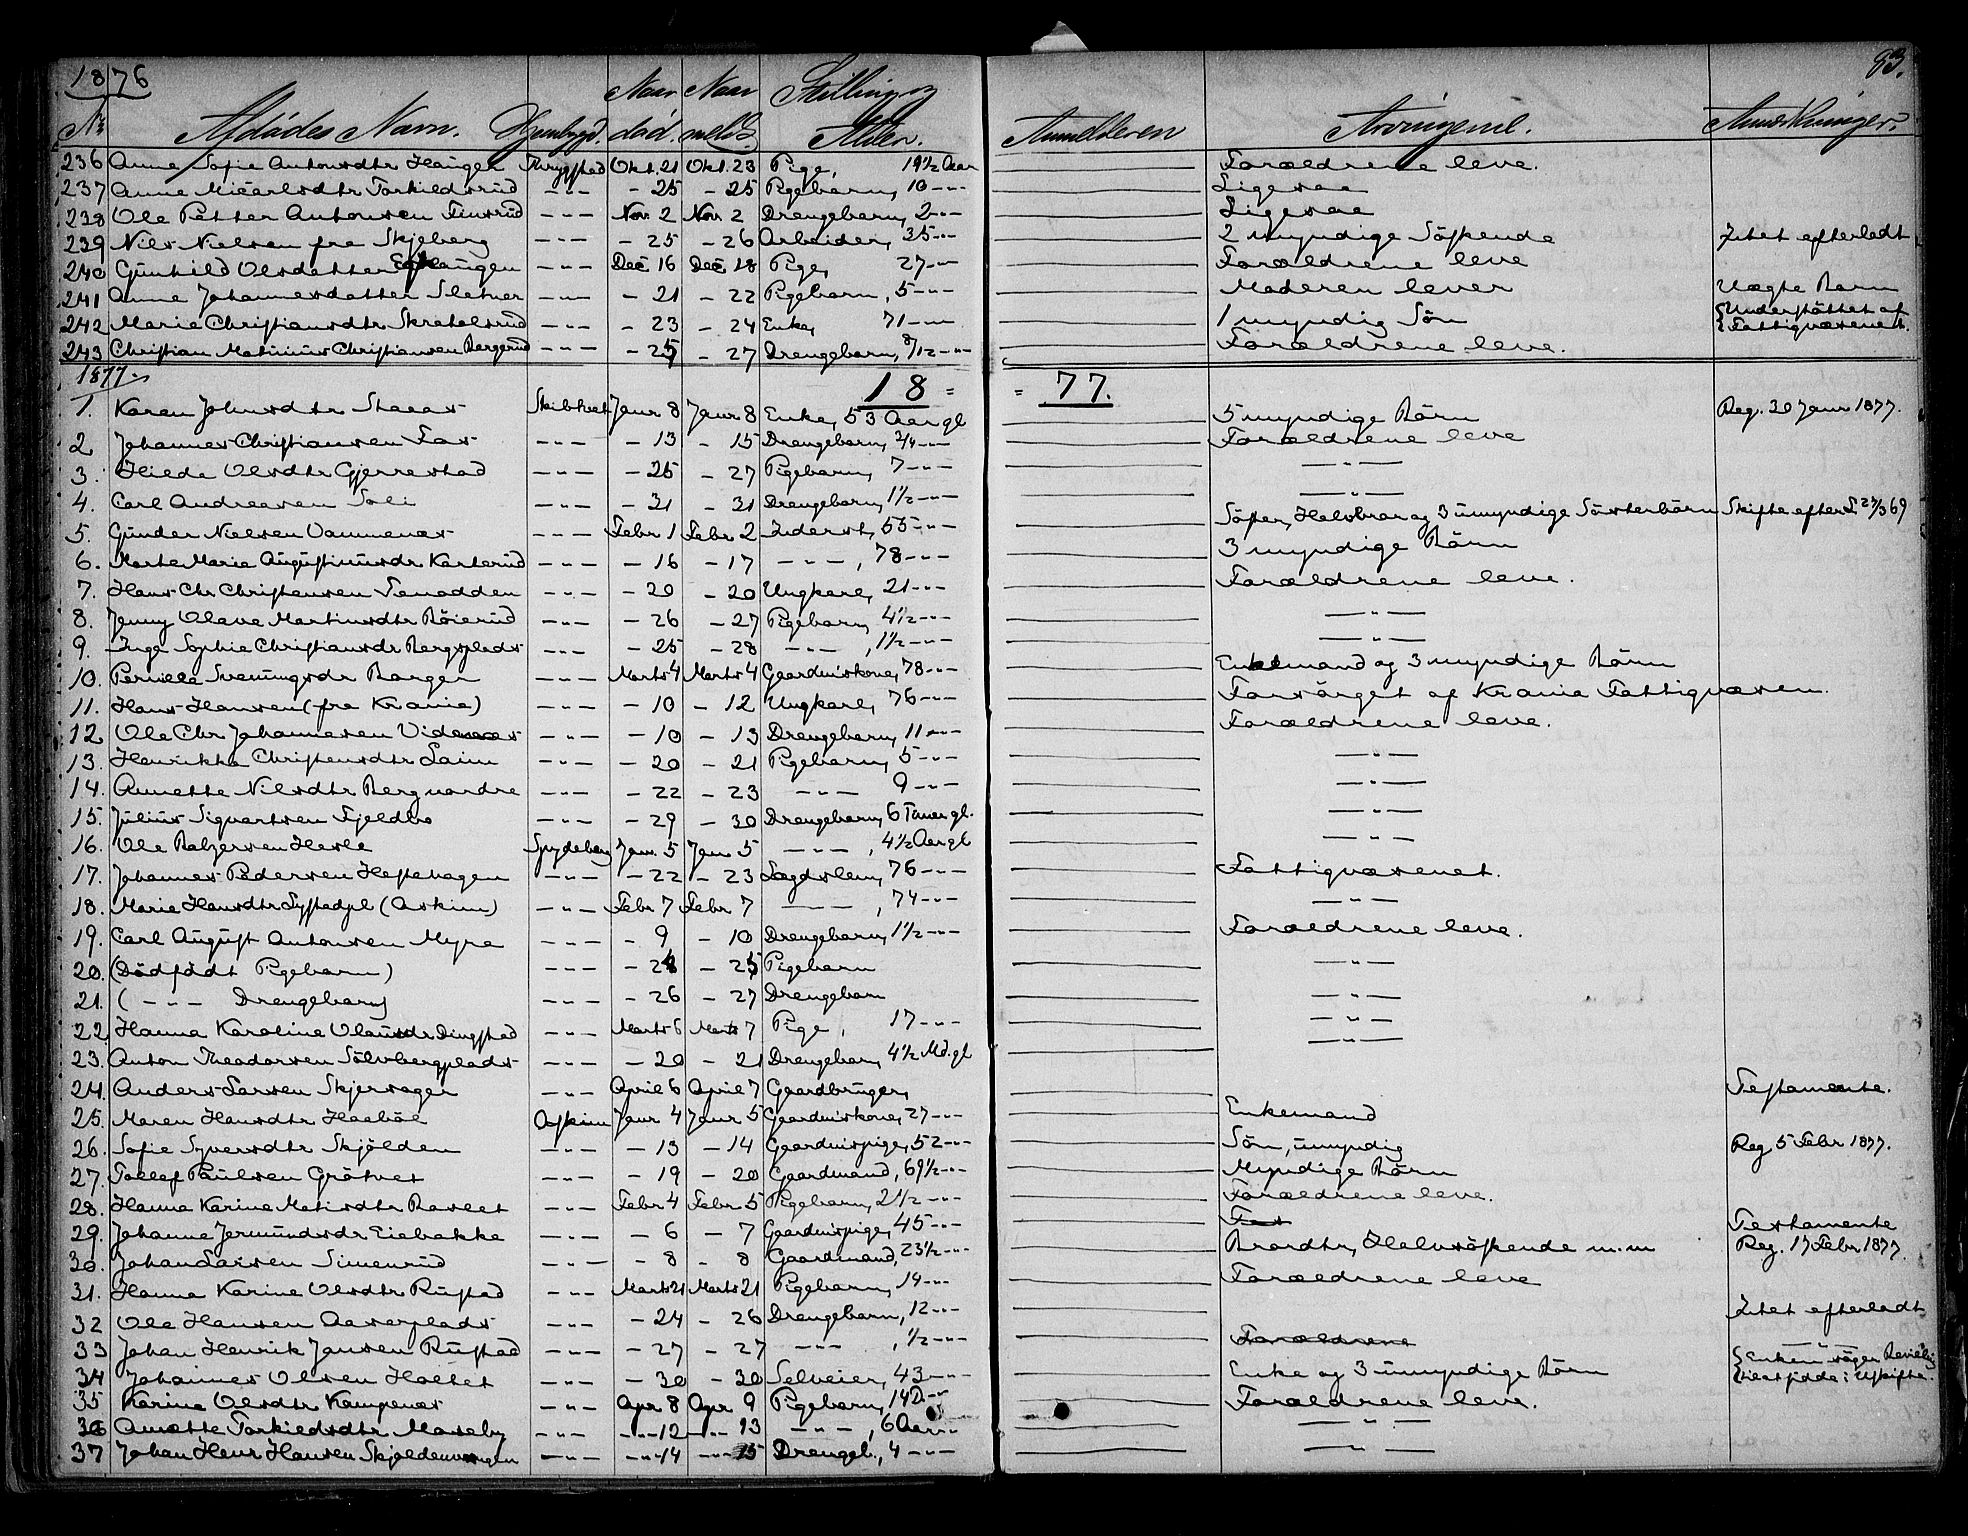 1876 83.
No Afdødes Navn. Hjembygd. Naar død. Naar meldt. Stilling og Alder. Anmelderen Arvingerne. Anmærkninger.
236 Anne Sofie Antonsdtr Haugen Thrygstad Okt. 21 Okt. 23 Pige, 19 1/2 Aar Forældrene leve.
237 Anne Micaelsdtr Torkildsrud -"- - 25 - 25 Pigebarn, 10 -"- Ligesaa
238 Ole Petter Antonsen Finsrud -"- Nov. 2 Nov. 2 Drengebarn, 2 -"- Ligesaa
239 Nils Nielsen fra Skjeberg -"- - 25 - 26 Arbeider, 35 -"- 2 myndige Söskende Intet efterladt
240 Gunhild Olsdatter Haugen -"- Dec 16 Dec. 18 Pige, 27 -"- Forældrene leve
241 Anne Johannesdatter Sletner -"- - 21 - 22 Pigebarn, 5 -"- Moderen lever Uægte Barn
242 Marie Christiansdtr Skrakelsrud -"- - 23 - 24 Enke, 71 -"- 1 myndig Sön {Understöttet af {Fattigvæsenet.
243 Christian Matinius Christiansen Bergerud -"- - 25 - 27 Drengebarn, 8/12 -"- Forældrene leve.
1877. 18 = = 77.
1. Karen Johnsdtr Staaar Skibtvet Janr 8 Janr 8 Enke, 53 Aar gl 5 myndige Börn Reg. 30 Janr 1877.
2. Johannes Christiansen Fos -"- - 13 - 15 Drengebarn, 3/4 -"- Forældrene leve
3. Hilda Olsdtr Gjerrestad -"- - 25 - 27 Pigebarn, 7 -"- -"-
4. Carl Andreasen Soli -"- - 31 - 31 Drengebarn, 1 1/2 -"- -"-
5. Gunder Nielsen Vammenæs -"- Febr 1 Febr 2 Inderst, 55 -"- Söster, Halvbror og 3 umyndige Sösterbörn Skifte efter 27/3 69
6. Marte Marie Augustinusdtr Karterud -"- - 16 - 17 -"-, 78 -"- 3 myndige Börn
7. Hans Chr Christensen Tenodden -"- - 20 - 20 Ungkarl, 21 -"- Forældrene leve.
8. Jenny Olava Martinsdtr Röierud -"- - 26 - 27 Pigebarn, 4 1/2 -"- -"-
9. Inga Sophie Christiansdr Bergsplads -"- - 25 - 28 -"-, 1 1/2 -"- -"-
10. Pernille Svenningsdr Borger -"- Marts 4 Marts 4 Gaardmskone, 78 -"- Enkemand og 3 myndige Börn
11. Hans Hansen (fra Krania) -"- - 10 - 12 Ungkarl, 76 -"- Forsörget af Krania Fattigvæsen.
12. Ole Chr Johannesen Videnæs -"- - 10 - 13 Drengebarn, 11 -"- Forældrene leve.
13. Henrikka Christensdtr Laim -"- - 20 - 21 Pigebarn, 5 -"- -"-
14. Annette Nilsdtr Bergvandre -"- - 22 - 23 -"- 9 -"- -"-
15. Julius Siquartsen Fjeldbo -"- - 29 - 30 Drengebarn, 6 Timer gl. -"-
16. Ole Balzersen Herle Spydeberg Jan. 5 Jan 5 -"-, 4 1/2 Aar gl -"-
17. Johannes Pedersen Hestehagen -"- - 22 - 23 Lægdslem, 76 -"- Fattigvæsenet.
18. Marie Hansdtr Lystadpl (Askim) -"- Febr 7 Febr 7 -"-, 74 -"- -"-
19. Carl August Antonsen Myra -"- - 9 - 10 Drengebarn, 1 1/2 -"- Forældrene leve.
20. (Dödfödt Pigebarn) -"- - 24 - 25 Pigebarn -"-
21. ( -"- Drengebarn) -"- - 26 - 27 Drengebarn -"-
22. Hanna Karoline Olausdr Dingstad -"- Marts 6 Marts 7 Pige, 17 -"- -"-
23. Anton Theodorsen Sölvbergplads -"- - 20 - 21 Drengebarn, 4 1/2 Md. gl -"-
24. Anders Larsen Skjersager -"- April 6 April 7 Gaardbruger, Testamente.
25. Maren Hansdtr Haaböl Askim Janr 4 Janr 5 Gaardmskone, 27 -"- Enkemand
26. Sofie Syversdtr Skjölden -"- - 13 - 14 Gaardmspige, 52 -"- Sön, umyndig Reg 5 Febr 1877.
27. Tollef Paulsen Grötvet -"- - 19 - 20 Gaardmand, 69 1/2 -"- Myndige Börn
28. Hanna Karine Matisdtr Ravlet -"- Febr 4 Febr 5 Pigebarn, 2 1/2 -"- Forældrene leve.
29. Johanne Jermundsdr Eiebakke -"- - 6 - 7 Gaardmspige, 45 -"- For Testamente
30. Johan Larsen Simenrud -"- - 8 - 8 Gaardmand, 23 1/2 -"- Brordtr, Halvsöskende m.m Reg. 17 Febr 1877.
31. Hanna Karine Olsdtr Rustad -"- Marts 21 Marts 21 Pigebarn, 14 -"- Forældrene leve
32 Ole Hansen Aaserplads -"- - 24 - 26 Drengebarn, 12 -"- Intet efterladt
33 Johan Henrik Jansen Rustad -"- - 27 - 27 -"-, 1/2 -"- Forældrene -"-
34 Johannes Olsen Holtet -"- - 30 - 30 Selveier, 43 -"- Enke og 3 umyndige Börn {Enken söger Bevilling {til at sidde i Uskifte.
35 Karine Olsdtr Kampenæs -"- Apr 8 Apr 9 Pigebarn, 14 D -"- Forældrene leve.
36 Anætte Torkildsdtr Moseby -"- -"- 12 -"- 13 -"-, 6 Aar -"- -"-
37 Johan Henr Hansen Skjoldenvangen -"- -"- 14 -"- 15 Drengeb., 4 -"- -"-